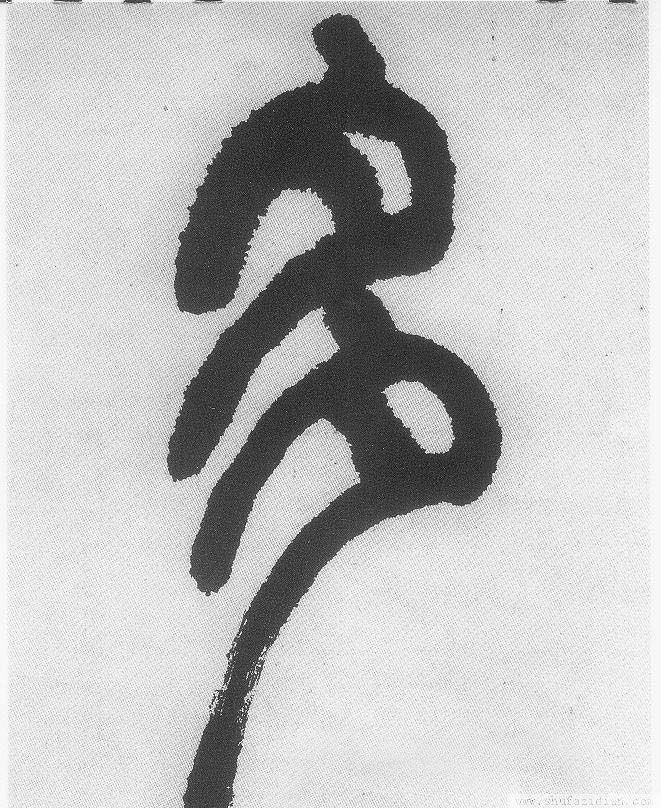 多
www.shufazidian.com